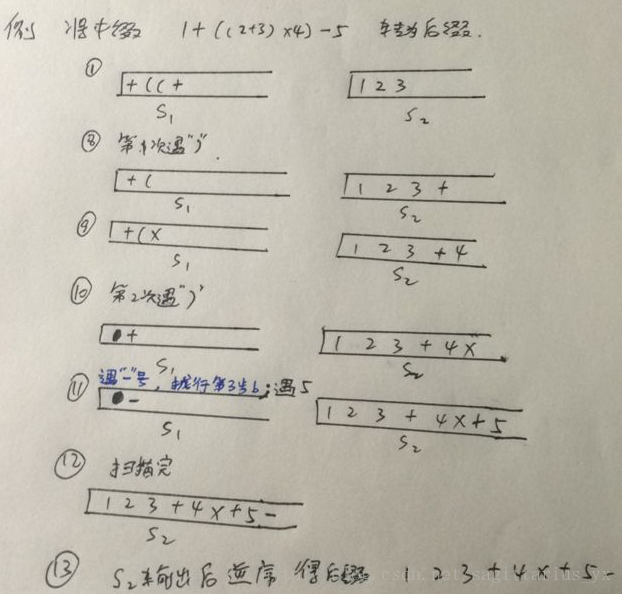 例 将中缀 1+((2+3)×4)-5 转为后缀.
① +((+ 1 2 3
S1 S2
⑧ 第1次遇")".
+( 1 2 3 +
S1 S2
⑨ +(× 1 2 3 +4
S1 S2
⑩ 第2次遇")"
+ 1 2 3 + 4×
S1 S2
⑪ 遇"-"号,执行第3步b;遇5
- 1 2 3 + 4×+5
S1 S2
⑫ 扫描完
1 2 3 + 4 × + 5 -
S2
⑬ S2输出后逆序 得后缀 1 2 3 + 4 × + 5 -
csdn.net/sagittarius_yx